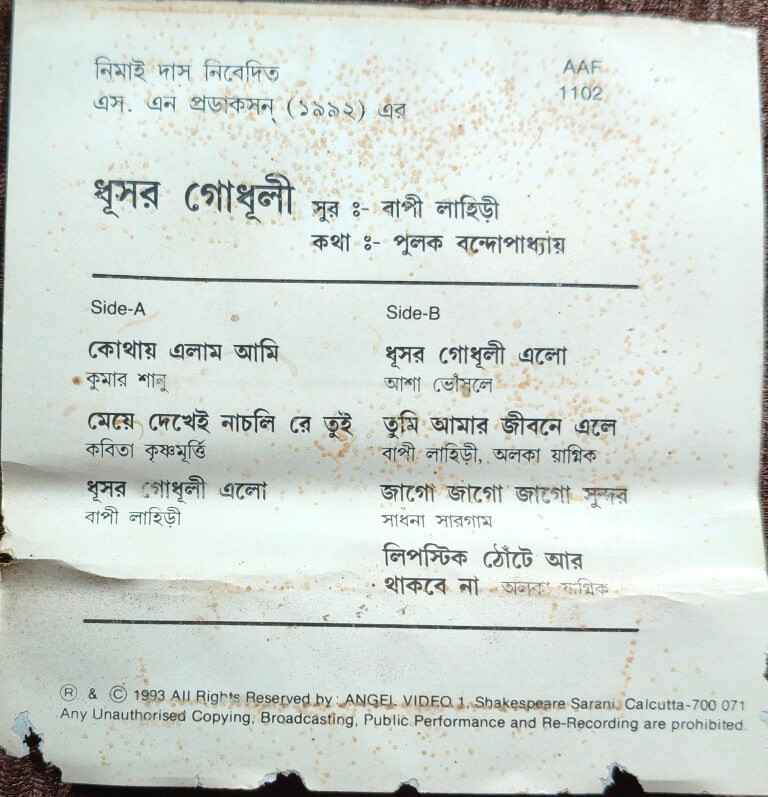 নিমাই দাস নিবেদিত
এস. এন প্রডাকসন্ (১৯৯২) এর
AAF
1102
ধূসর গোধূলী
সুর ঃ- বাপী লাহিড়ী
কথা ঃ- পুলক বন্দোপাধ্যায়
Side-A
কোথায় এলাম আমি
কুমার শানু
মেয়ে দেখেই নাচলি রে তুই
কবিতা কৃষ্ণমূর্ত্তি
ধূসর গোধূলী এলো
বাপী লাহিড়ী
Side-B
ধূসর গোধূলী এলো
আশা ভোঁসলে
তুমি আমার জীবনে এলে
বাপী লাহিড়ী, অলকা য়াগ্নিক
জাগো জাগো জাগো সুন্দর
সাধনা সারগাম
লিপস্টিক ঠোঁটে আর
থাকবে না অলকা য়াগ্নিক
Ⓡ & Ⓒ 1993 All Rights Reserved by : ANGEL VIDEO 1, Shakespeare Sarani, Calcutta-700 071
Any Unauthorised Copying, Broadcasting, Public Performance and Re-Recording are prohibited.